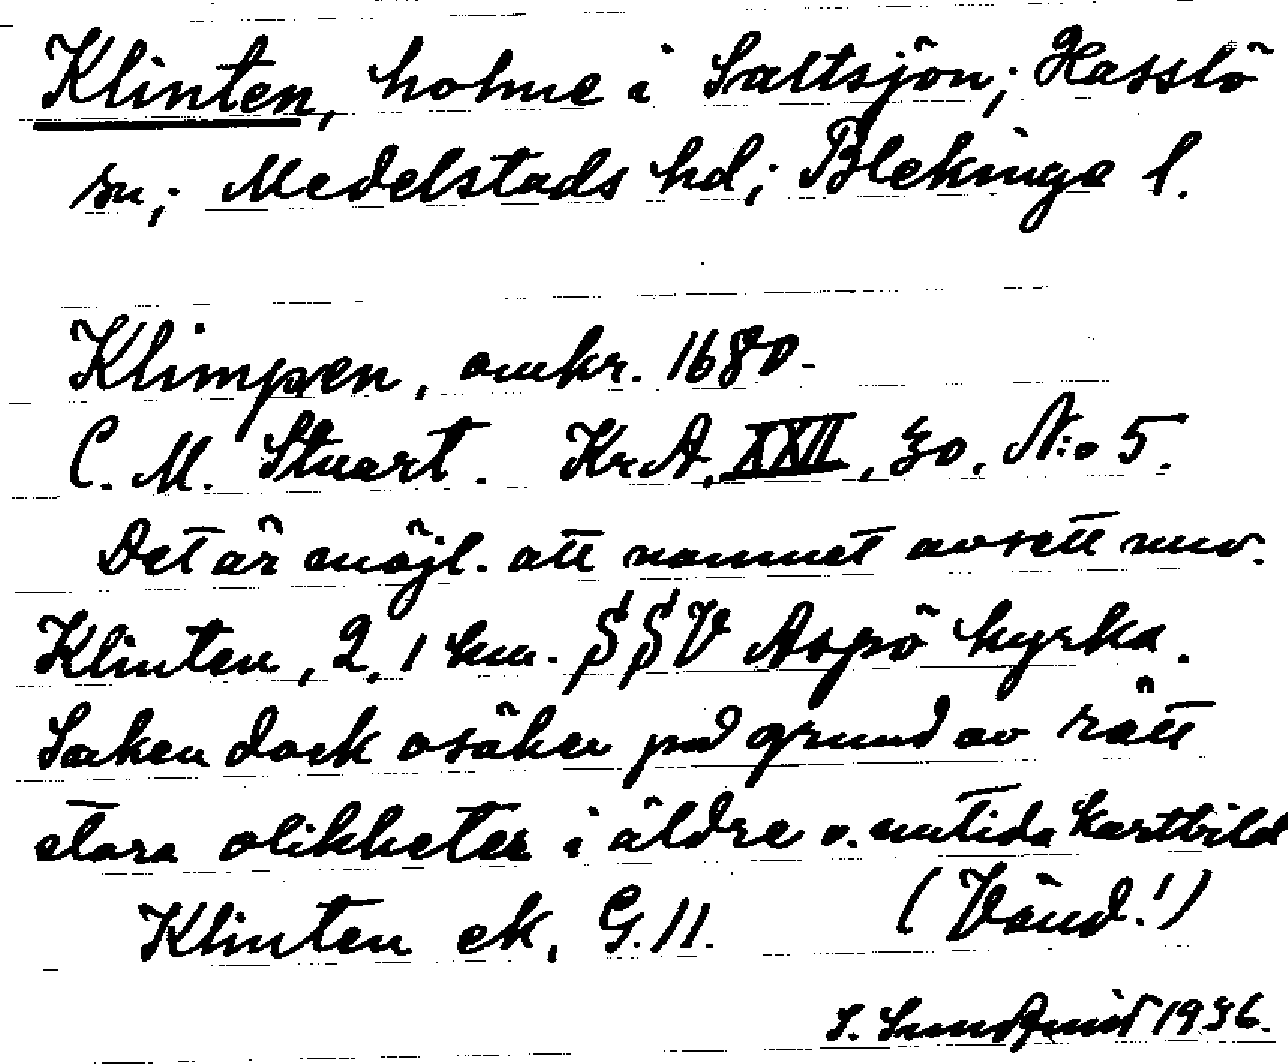 Klinten, holme i Saltsjön; Hasslö
sn; Medelstads hd; Blekinge l.
Klimpen, omkr. 1680.
C. M. Stuart. KrA, XXII, 30. N:o 5.
Det är möjl. att namnet avsett nuv.
Klinten, 2,1 km. SSV Aspö kyrka.
Saken dock osäker på grund av rätt
stora olikheter i äldre o. nutida kartbild
Klinten ek. G. 11. (Vänd!)
S. Sundqvist 1936.